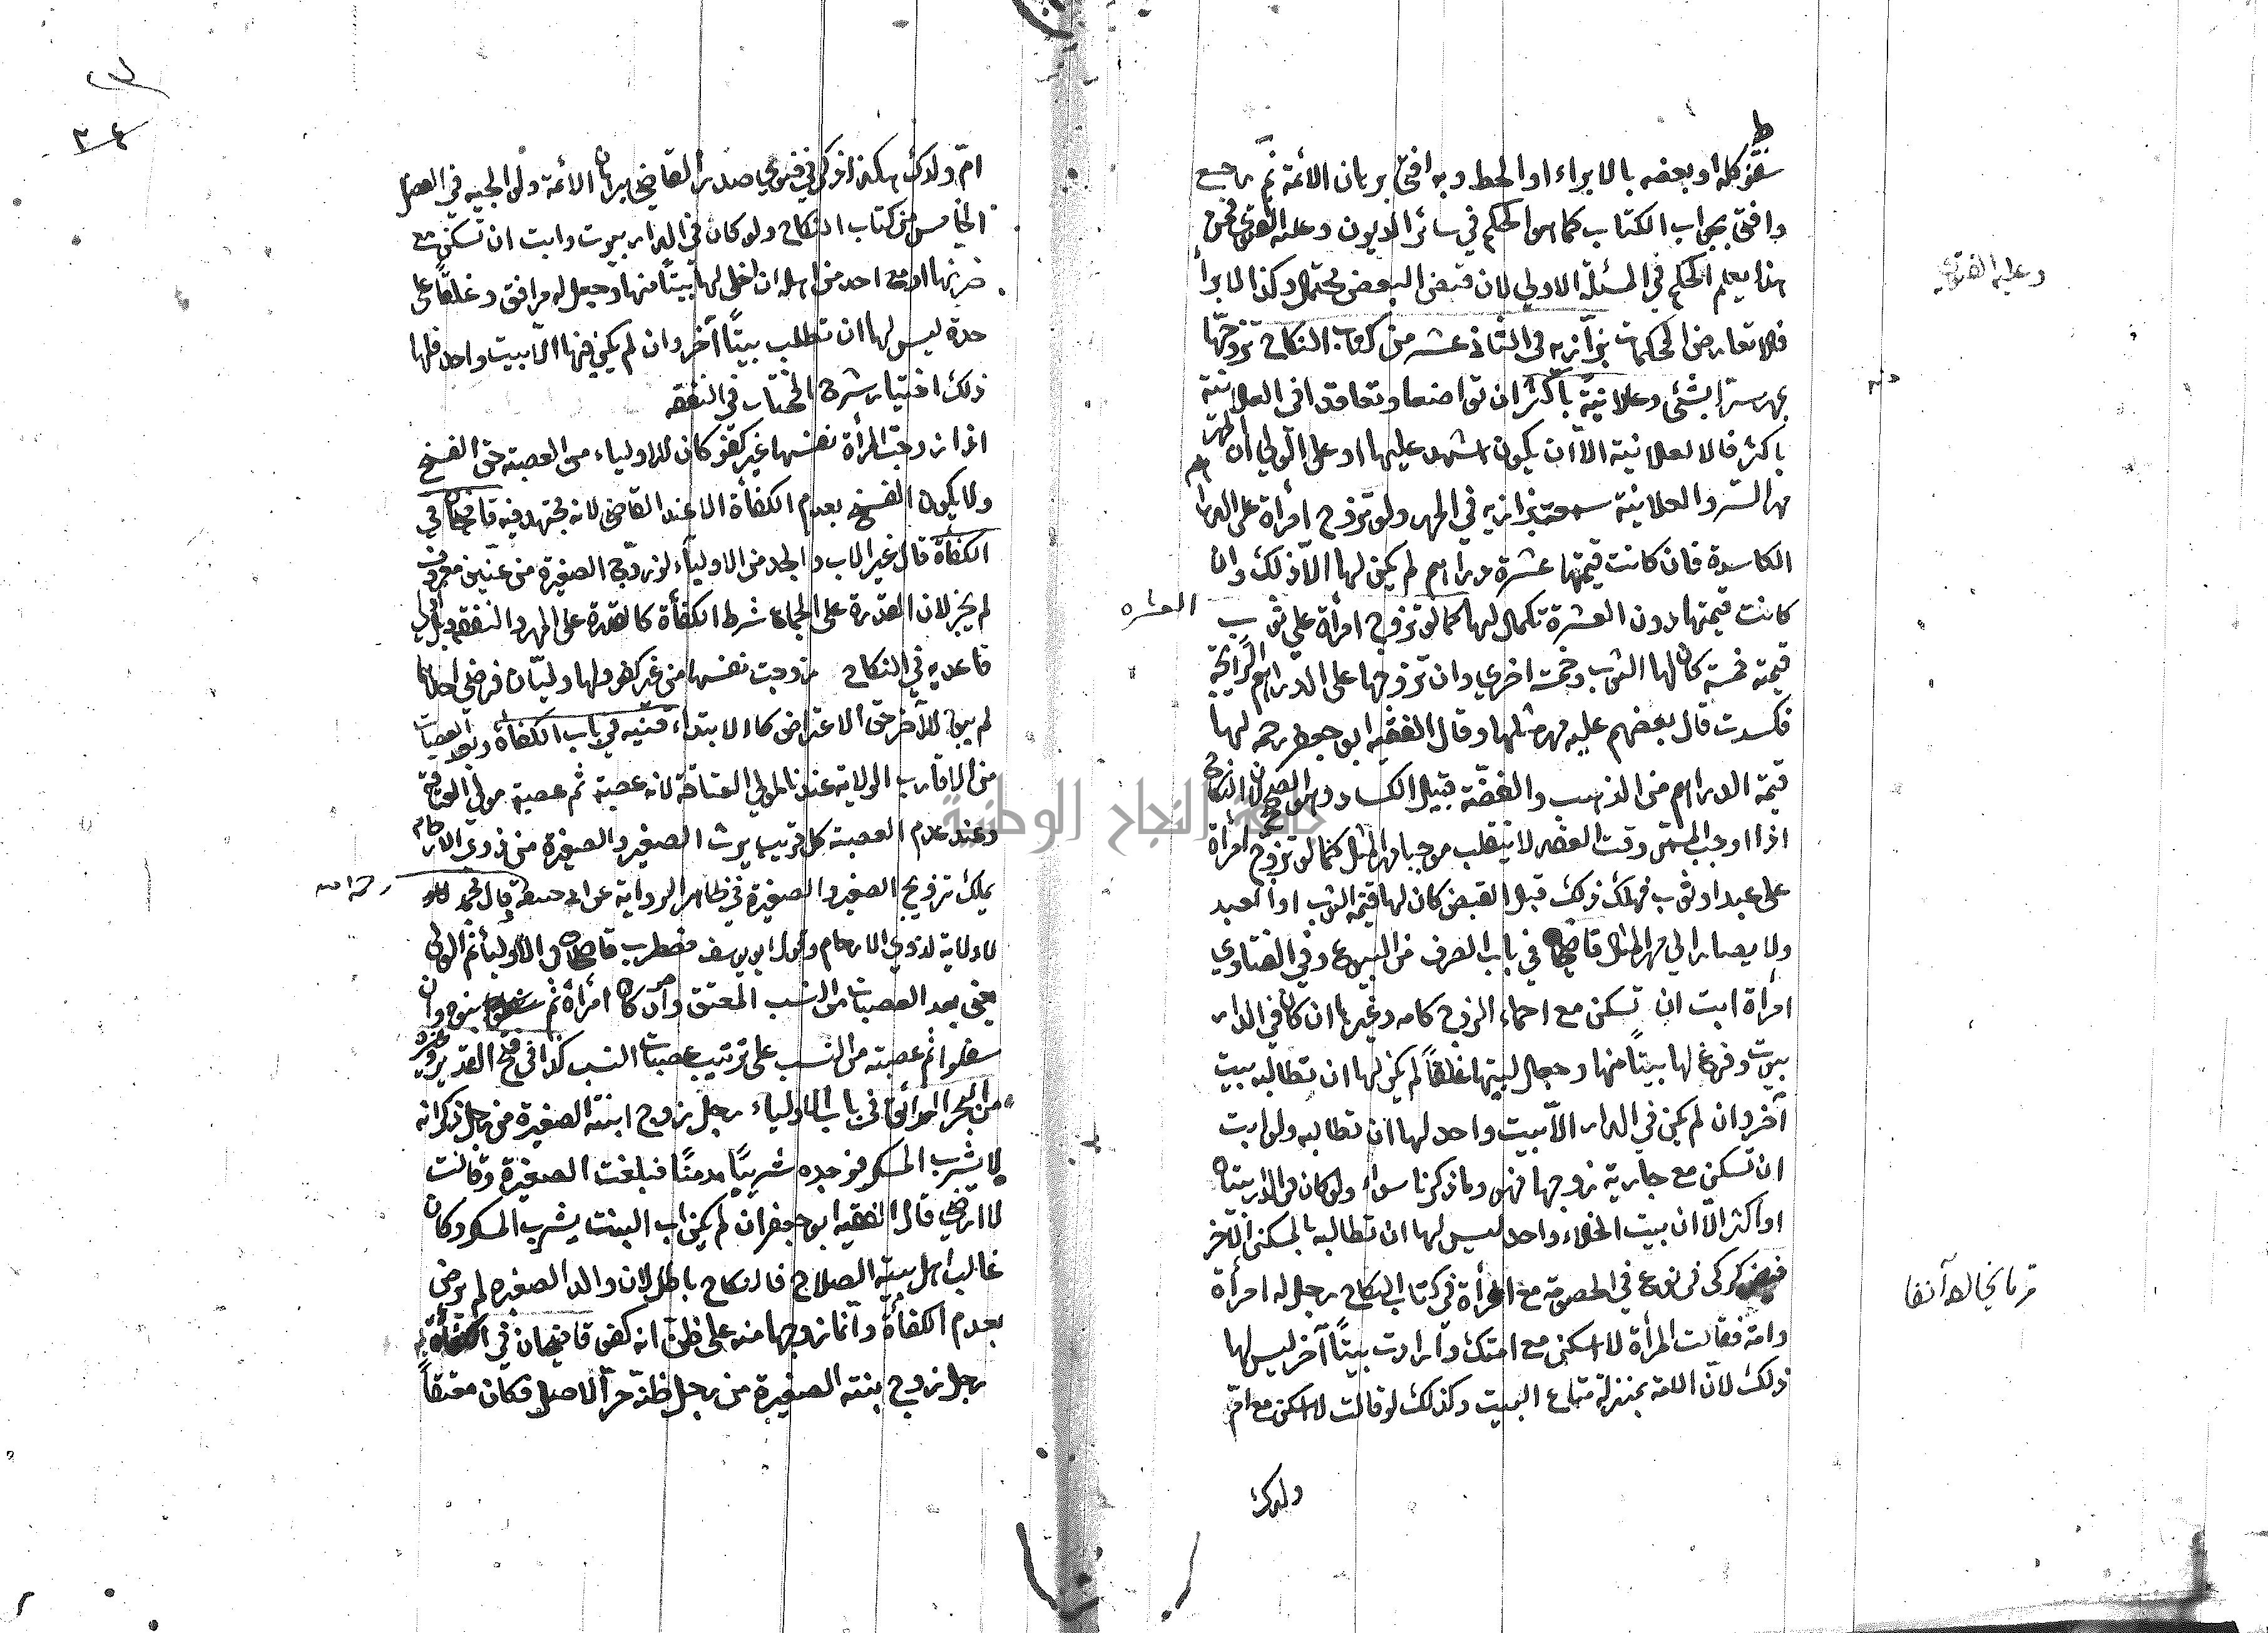 سقوط كله او بعضه بالابراء او الحط وبه افتى برهان الأئمة ثم رجع
وافتى بجواب الكتاب كما هو الحكم في سائر الديون وعليه الفتوى فمن
هذا يعلم الحكم في المسئلة الاولى لان قبض البعض محتمل وكذا الابرأ
وعليه الفتوى
فلا تعارض الحكمان بزازيه في الثاني عشر من كتاب النكاح تزوجها
بمهر سرا بشئ وعلانية باكثر ان تواضعا وتعاقدا في العلانية
باكثر فالعلانية الا ان يكون اشهد عليها او على الولي ان المهر
مهر السر والعلانية سمعة بزازيه في المهر ولو تزوج امرأة على الدراهم
الكاسدة فان كانت قيمتها عشرة دراهم لم يكن لها الا ذلك وان
كانت قيمتها دون العشرة تكمل لها العشره كما لو تزوج امرأة على ثوب
قيمته خمسة كان لها الثوب وخمسة اخرى وان تزوجها على الدراهم الرايجة
فكسدت قال بعضهم عليه مهر مثلها وقال الفقيه ابو جعفر رحمه لها
قيمة الدراهم من الذهب والفضة قبيل الكساد وهو الصحيح لان النكاح
اذا اوجب المسمى وقت العقد لا ينقلب موجبا مهر المثل كما لو تزوج امرأة
على عبد او ثوب فهلك ذلك قبل القبض كان لها قيمة الثوب او العبد
ولا يصار الى مهر المثل قاضيخان في باب الصرف من البيوع وفي الفتاوى
امرأة ابت ان تسكن مع احماء الزوج كامه وغيرها ان كان في الدار
بيوت وفرغ لها بيتا منها وجعل لبيتها غلقا لم يكن لها ان تطالبه ببيت
آخر وان لم يكن في الدار الا بيت واحد لها ان تطالبه ولو ابت
ان تسكن مع جارية زوجها فهو وما ذكرنا سواء ولو كان في الدار بيتان
او اكثر الا ان بيت الخلاء واحد ليس لها ان تطالبه بالمسكن الآخر
فيض كركى في نوع في الخصومة مع المرأة في كتاب النكاح رجل له امرأة
مر ما يخالفه آنفا
وامة فقالت المرأة لا اسكن مع امتك وارادت بيتا آخر ليس لها
ذلك لان الامة بمنزلة متاع البيت وكذلك لو قالت لا اسكن مع ام
ولدك
ام ولدك هكذا ذكر في فتوى صدر القاضي برهان الأئمة ولوالجيه في الفصل
الخامس من كتاب النكاح ولو كان في الدار بيوت وابت ان تسكن مع
ضرتها او مع احد من اهله ان اخلى لها بيتا منها وجعل له مرافق وغلقا على
حدة ليس لها ان تطلب بيتا آخر وان لم يكن فيها الا بيت واحد فلها
ذلك اختيار شرح المختار في النفقه
اذا زوجت المرأة نفسها غير كفو كان للاولياء من العصبة حق الفسخ
ولا يكون الفسخ بعدم الكفأة الا عند القاضي لانه مجتهد فيه قاضيخان في
الكفأة قال غير الاب والجد من الاولياء لو زوج الصغيرة من عنين معروف
لم يجز لان القدرة على الجماع شرط الكفأة كالقدرة على المهر والنفقه بل اولى
قاعديه في النكاح زوجت نفسها من غير كفو ولها وليان فرضي احدهما
لم يبق للآخر حق الاعتراض كالابتداء قنيه في باب الكفأة وبعد العصبات
من الاقارب الولاية عندنا لمولى العتاقة لانه عصبة ثم عصبة مولى العتاقة
وعند عدم العصبة كل قريب يرث الصغير والصغيرة من ذوى الارحام
يملك تزويج الصغير والصغيرة في ظاهر الرواية عن ابى حنيفه وقال محمد رحمه الله
لا ولاية لذوي الارحام وقول ابي يوسف مضطرب قاضيخان في الاولياء ثم الولى
يعنى بعد العصبات من النسب المعتق وان كان امرأة ثم بنوه وان
سفلوا ثم عصبته من النسب على ترتيب عصبات النسب كذا في فتح القدير وغيره
من البحر الرائق في باب الاولياء رجل زوج ابنته الصغيرة من رجل ذكر انه
لا يشرب المسكر فوجده شريبا مدمنا فبلغت الصغيرة وقالت
لا ارضى قال الفقيه ابو جعفر ان لم يكن اب البنت يشرب المسكر وكان
غالب اهل بيته الصلاح فالنكاح باطل لان والد الصغيره لم يرض
بعدم الكفأة وانما زوجها منه على ظن انه كفو قاضيخان في الكفأة
رجل زوج بنته الصغيرة من رجل ظنه حر الاصل فكان معتقا